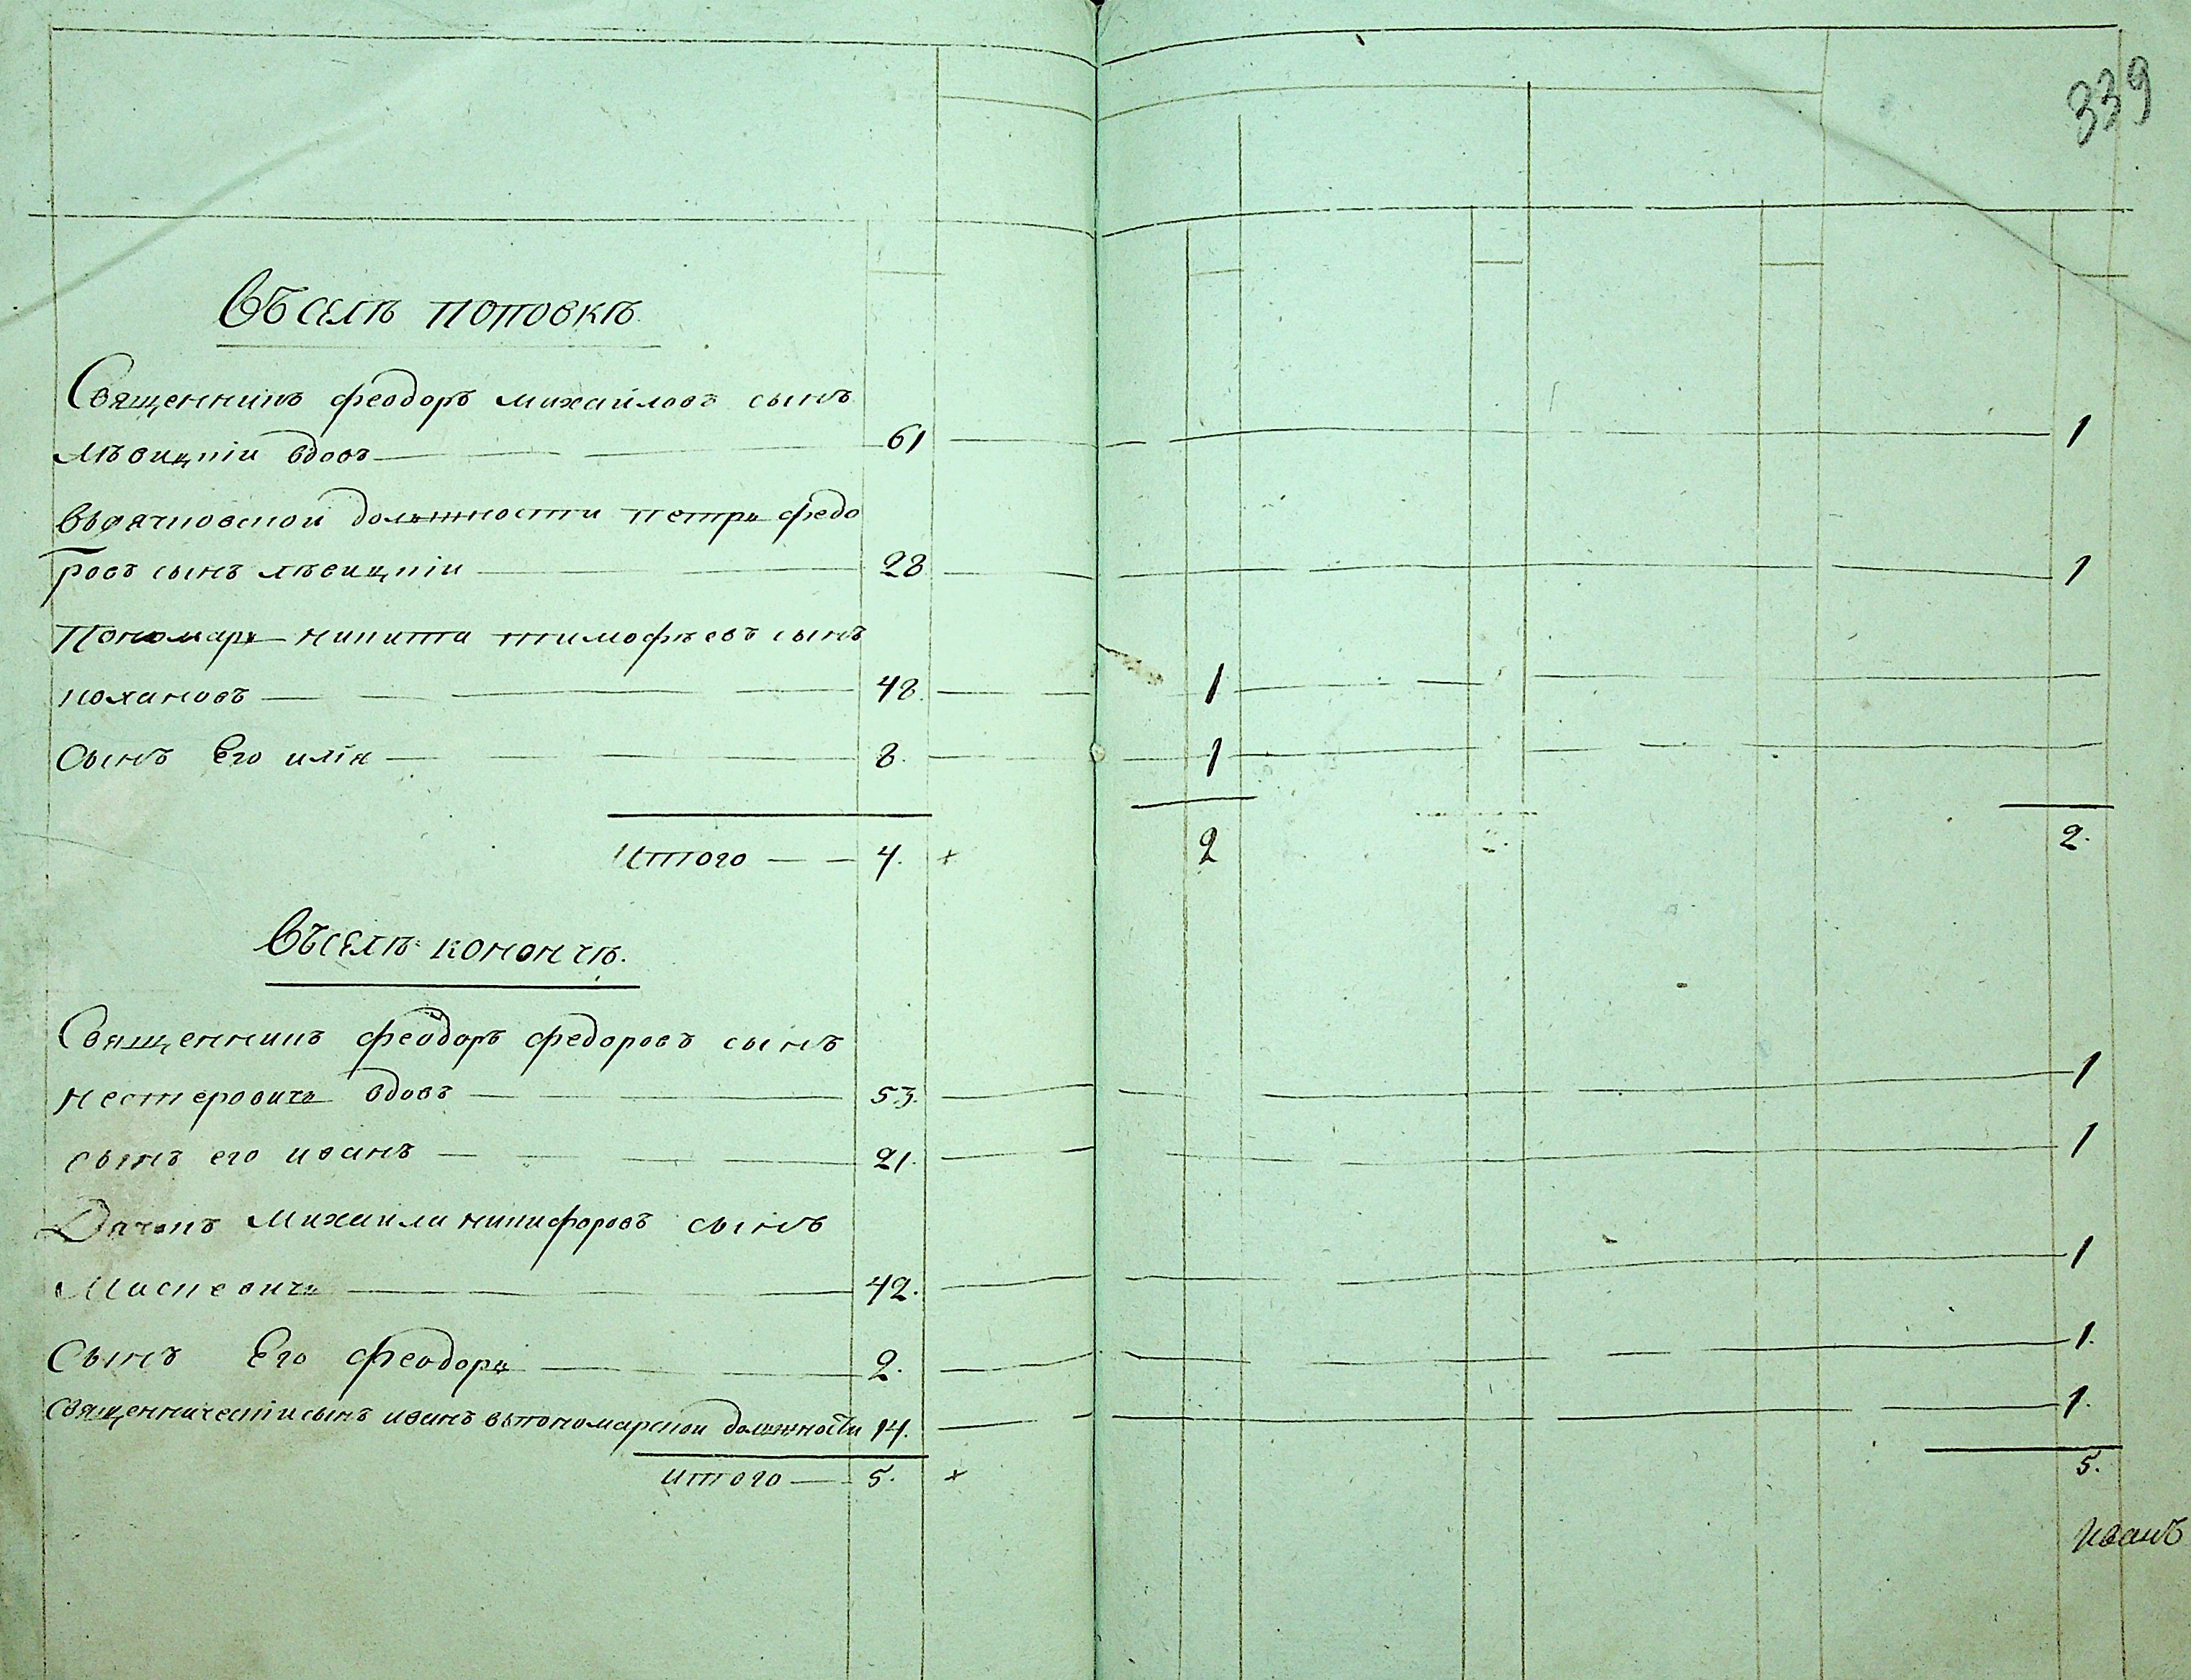 339
Въ селѣ поповкѣ.
Священникъ феодоръ михайловъ сынъ
лѣвицкій вдовъ 61 1
Въдячковской должности петръ федо
ровъ сынъ лѣвицкій 28 1
Пономарь никита тимофѣевъ сынъ
колановъ 48. 1
Сынъ Его илія 8. 1
Итого 4. 2 2.
Въселѣ конончѣ.
Священникъ феодоръ федоровъ сынъ
нестеровичъ вдовъ 53. 1
сынъ его иванъ 21. 1
Дячокъ михаила никифоровъ сынъ
Маскевичъ 42. 1
Сынъ Его феодоръ 2. 1.
священническій сынъ иванъ въпономарской должности 14. 1.
итого 5. 5.
иванъ